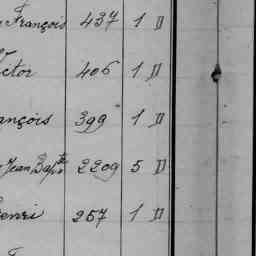 François 437 1 D
ctor 406 1 D
ançois 399 1 D
Jean Bapte 2209 5 D
enri 257 1 D